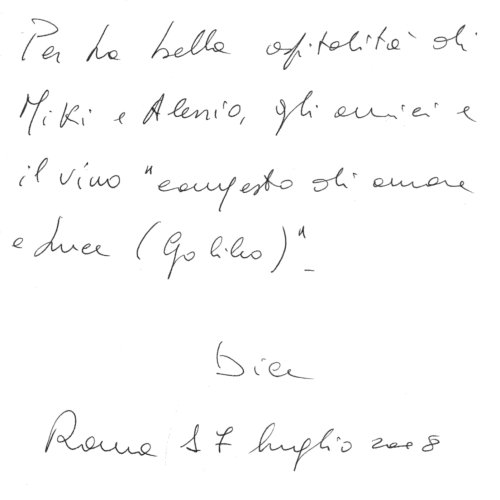 Per la bella ospitalità di
Miki e Alessio, gli amici e
il vino "composto di amore
e luce (Galileo)"
Roma 17 luglio 2008